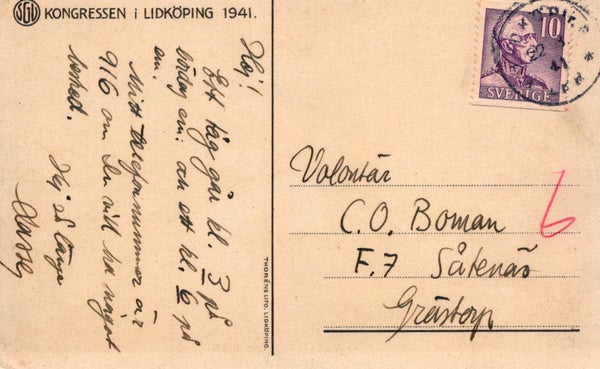 SGU KONGRESSEN i LIDKÖPING 1941.
Hej!
Ett tåg går kl. 3 på
lördag em. och ett kl. 6 på
em.
Mitt telefonnummer är
916 om du vill ha något
besked.
Hej så länge
THORÉNS LITO. LIDKÖPING.
10
SVERIGE
Volontär
C.O. Boman
F.7 Såtenäs
Grästorp
6